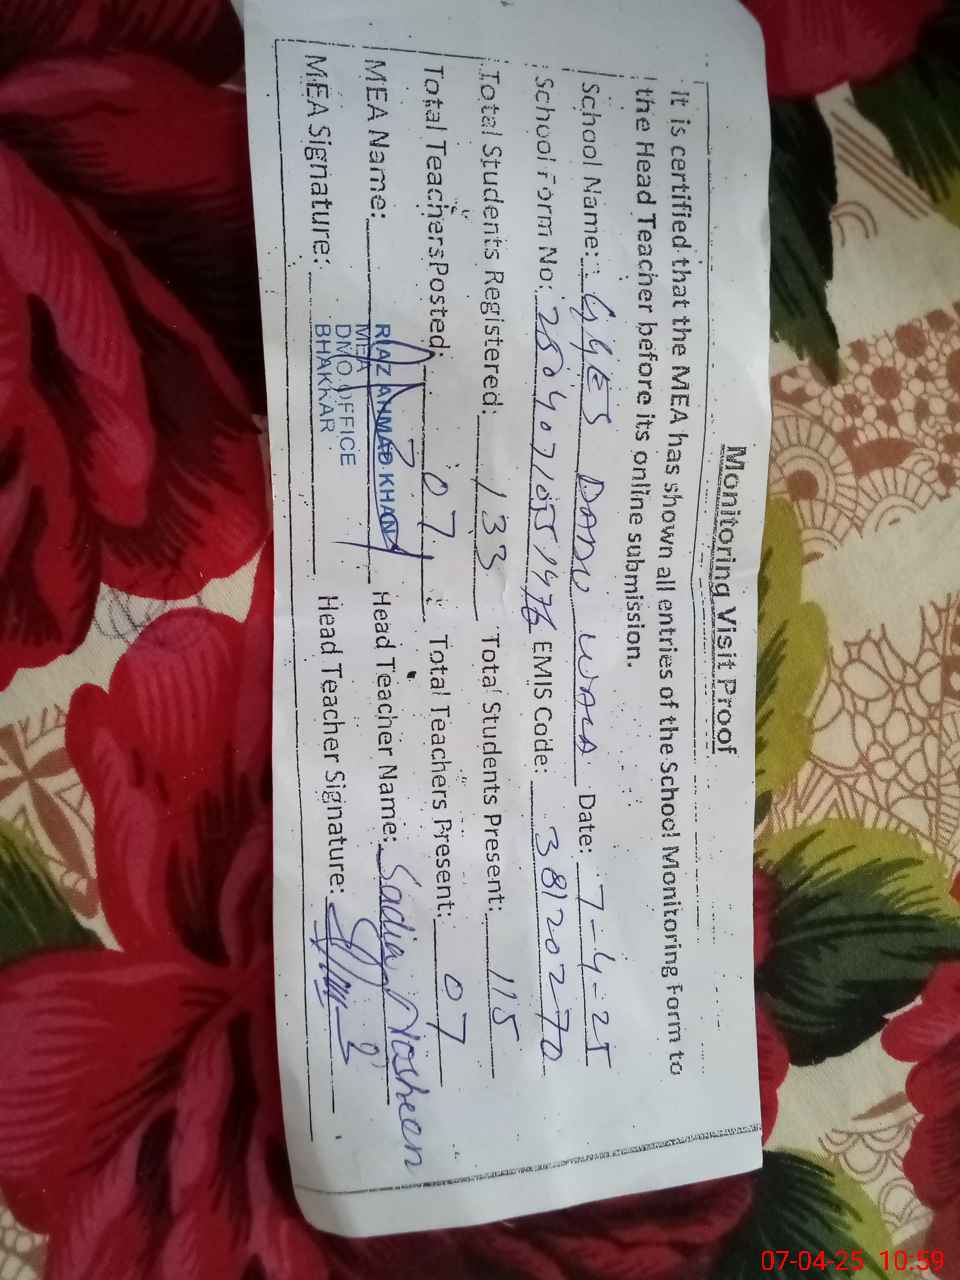 Monitoring Visit Proof
it is certified that the MEA has shown all entries of the School Monitoring Form to
the Head Teacher before its online submission.
School Name: GGES DADU WALA Date: 7-4-25
School Form No: EMIS Code: 38120270
Total Students Registered: 133 Total Students Present: 115
Total Teachers Posted: 07 Total Teachers Present: 07
MEA Name: RIAZ AHMAD KHAN Head Teacher Name: Sadia Nosheen
MEA
DMO OFFICE
BHAKKAR
MEA Signature: Head Teacher Signature:
07-04-25 10:59